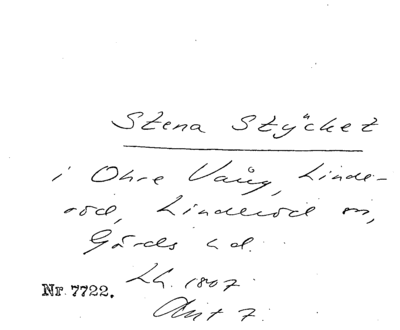 Stena Stÿcket
i Ohre Vång, Linde-
röd, Linderöd sn,
Gärds hd.
Lh. 1807.
Akt 7.
Nr 7722.